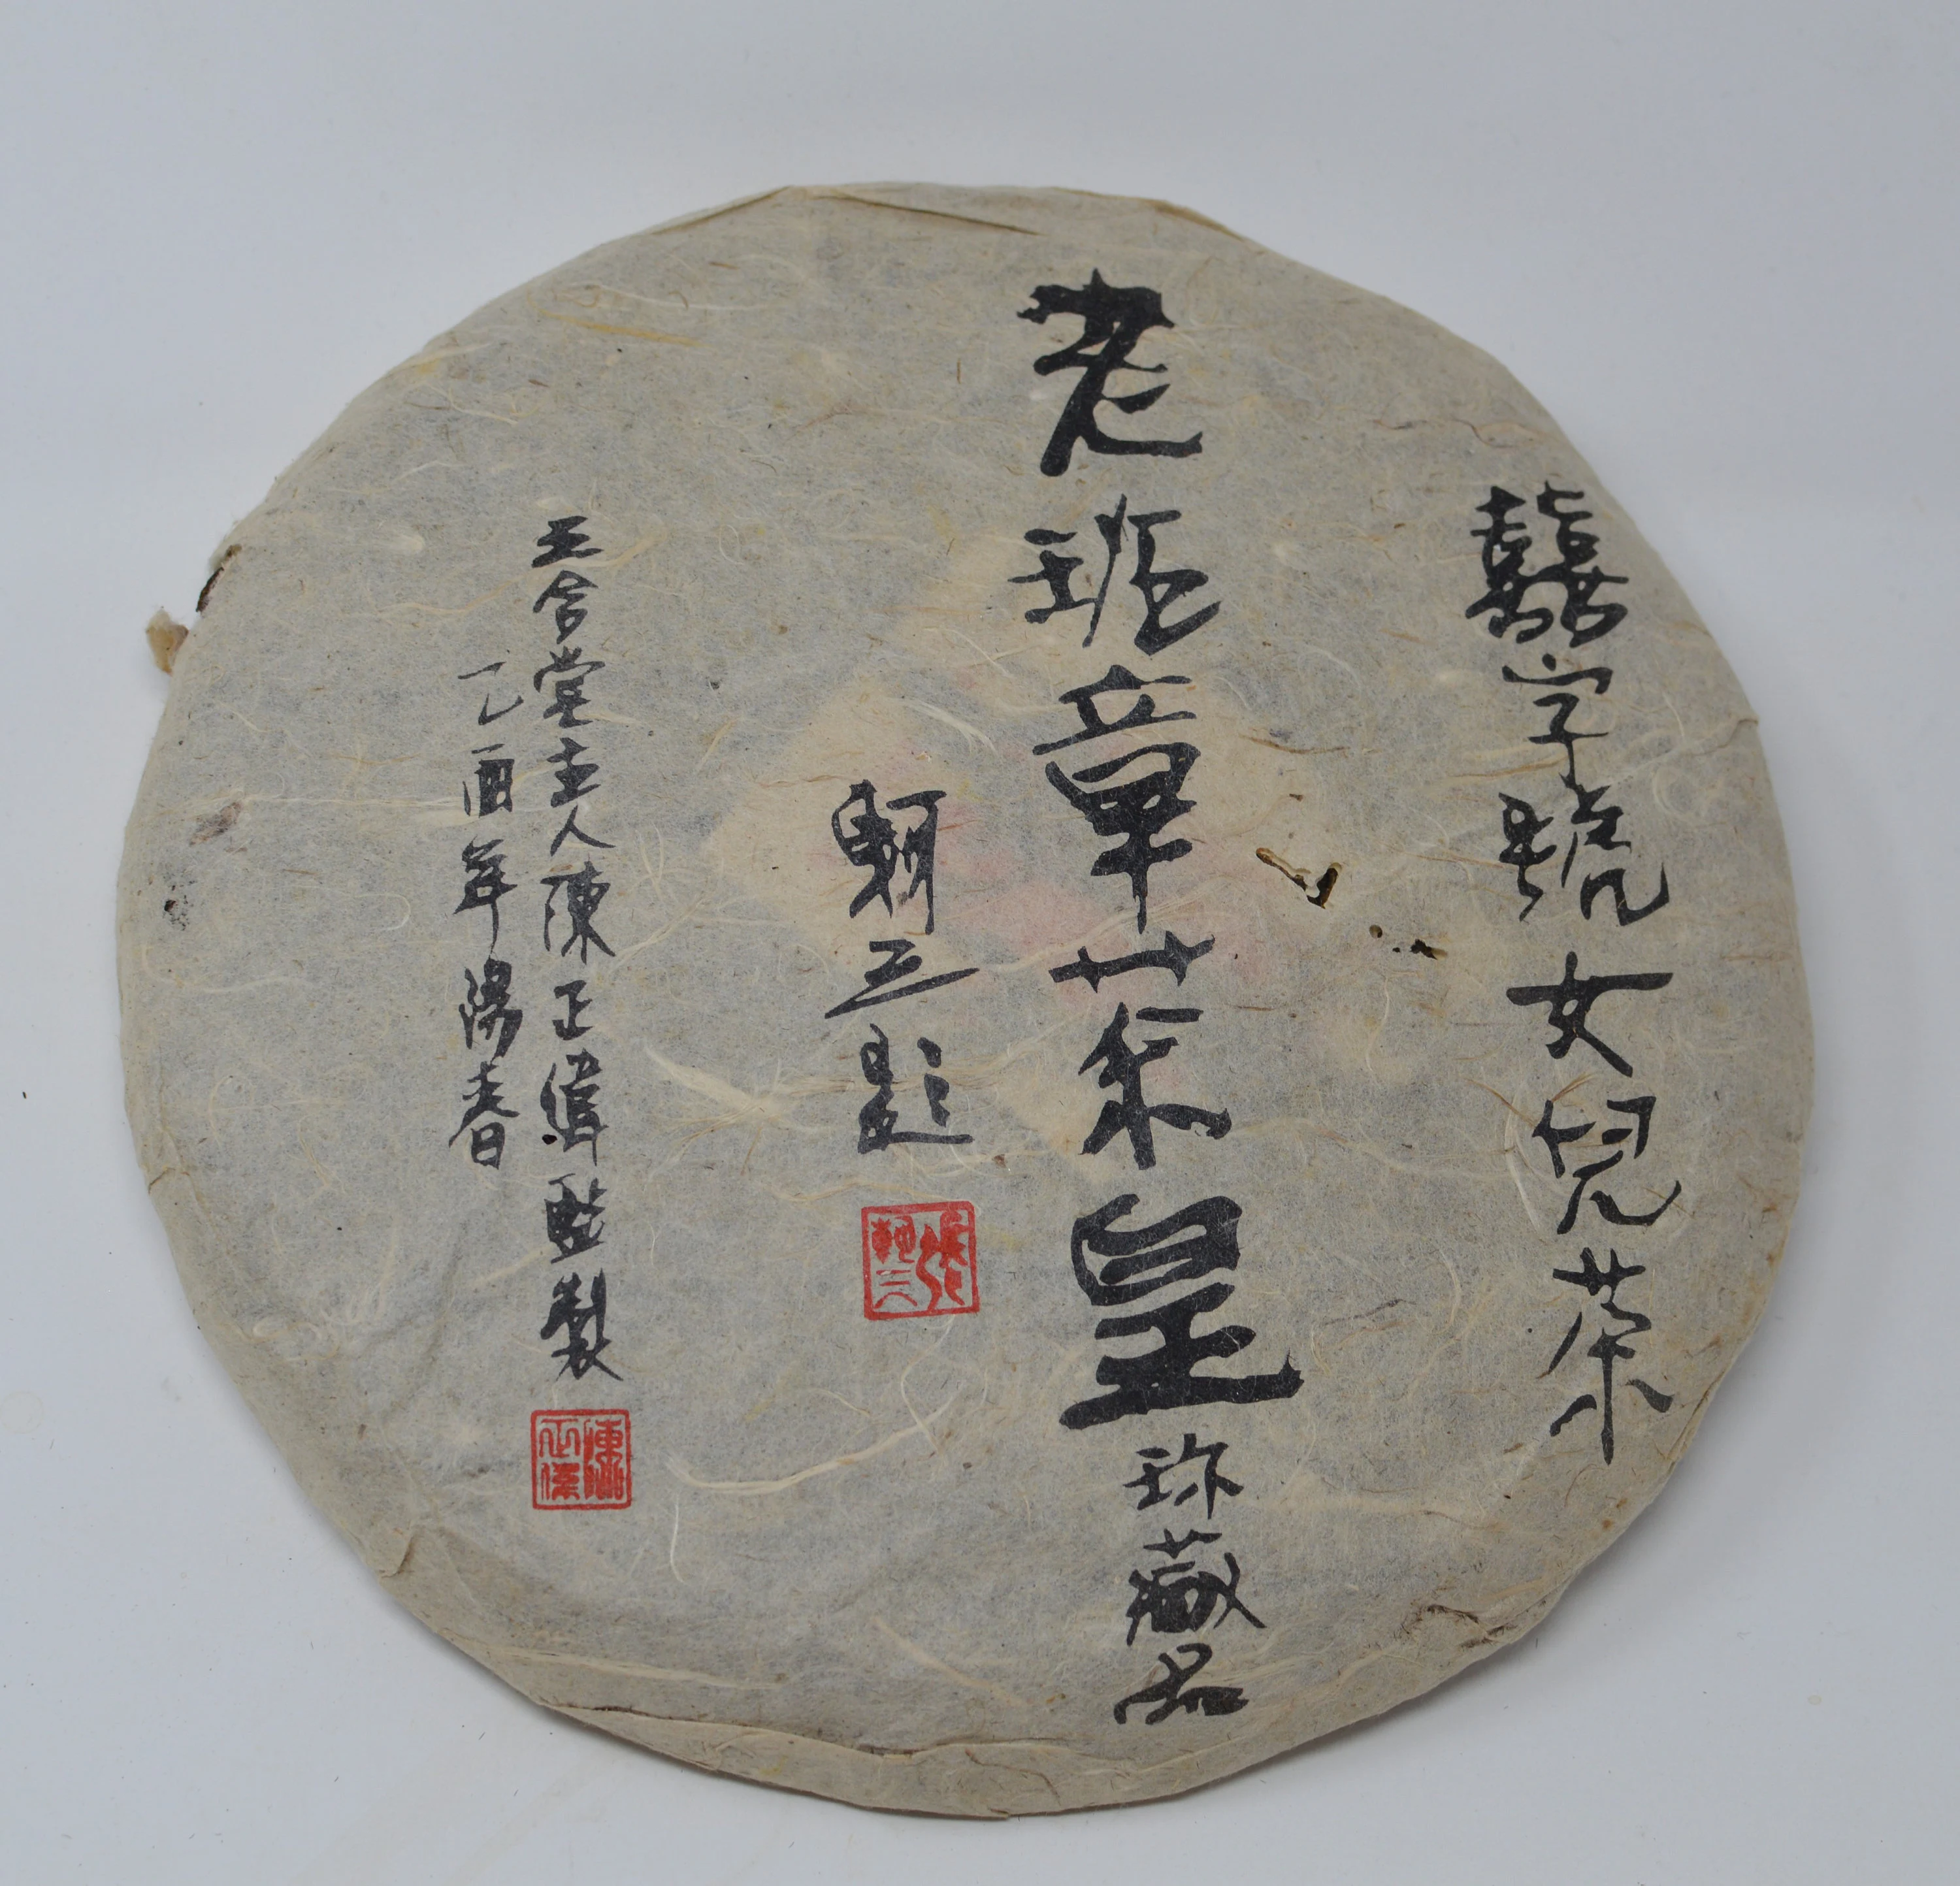 囍字號女兒茶
老班章茶皇珍藏品
三題
合堂主人陳正偉監製
乙酉年陽春